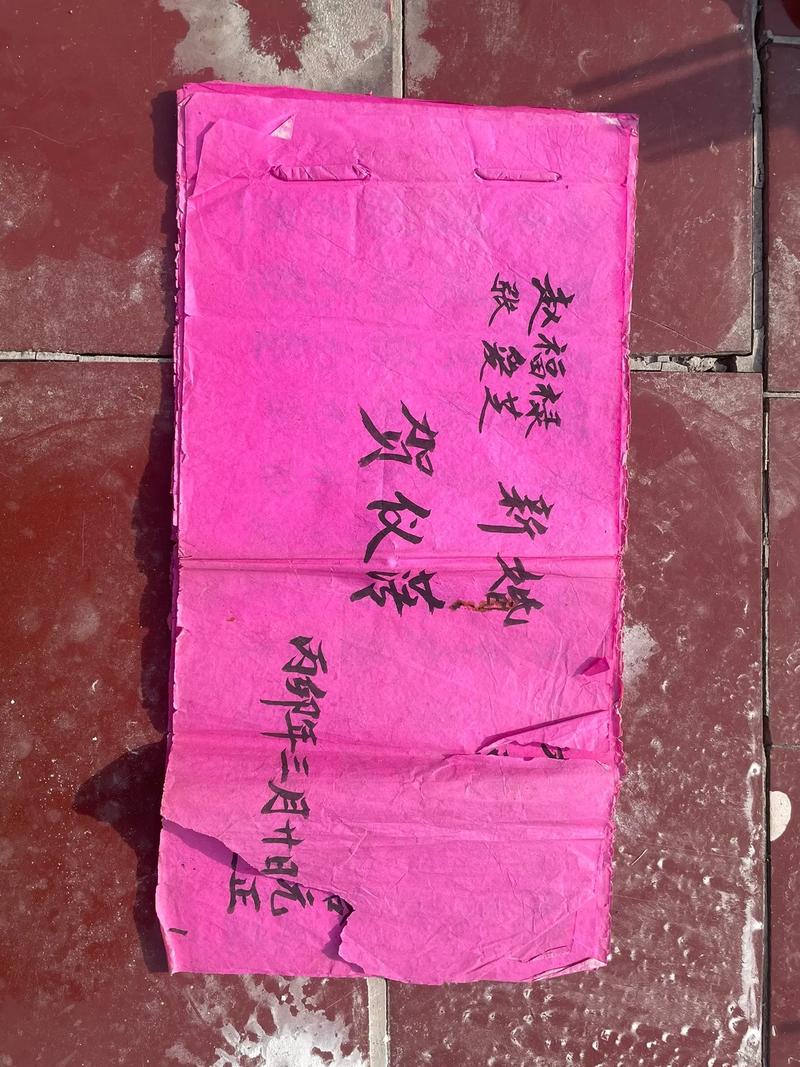 赵福禄
爱芝
新婚
贺仪簿
丙卯年三月廿日元
正